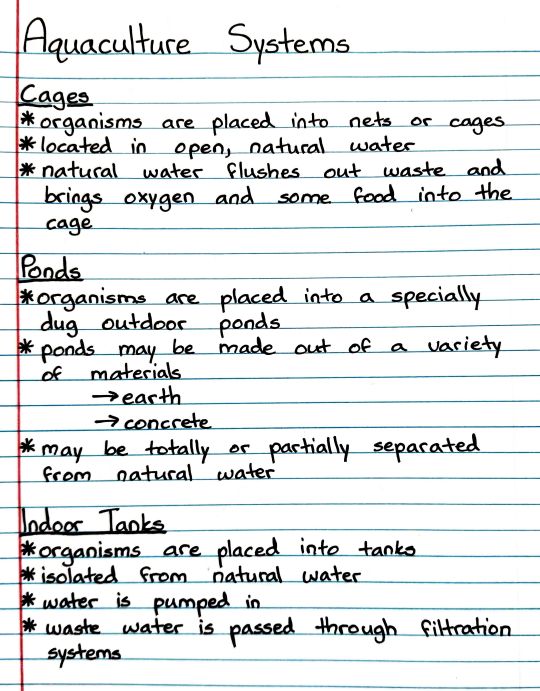 Aquaculture Systems
Cages
* organisms are placed into nets or cages
* located in open, natural water
* natural water flushes out waste and
brings oxygen and some food into the
cage
Ponds
* organisms are placed into a specially
dug outdoor ponds
* ponds may be made out of a variety
of materials
→ earth
→ concrete
* may be totally or partially separated
from natural water
Indoor Tanks
* organisms are placed into tanks
* isolated from natural water
* water is pumped in
* waste water is passed through filtration
systems